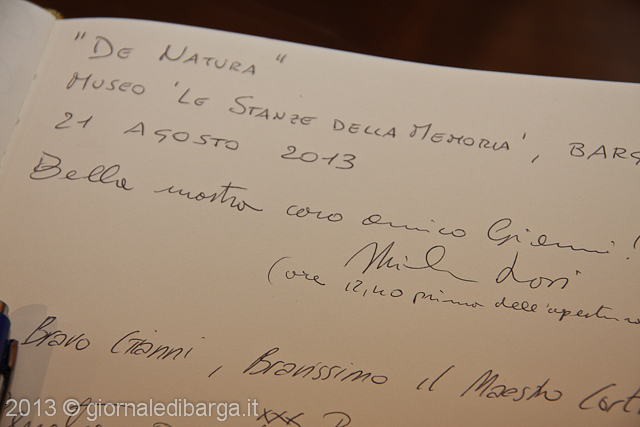 "DE NATURA"
MUSEO 'LE STANZE DELLA MEMORIA', BARG
21 AGOSTO 2013
Bella mostra caro amico Gianni!
(ore 12,40 prima dell'apertura
Bravo Gianni, Bravissimo il Maestro Cort
xxx
2013 © giornaledibarga.it